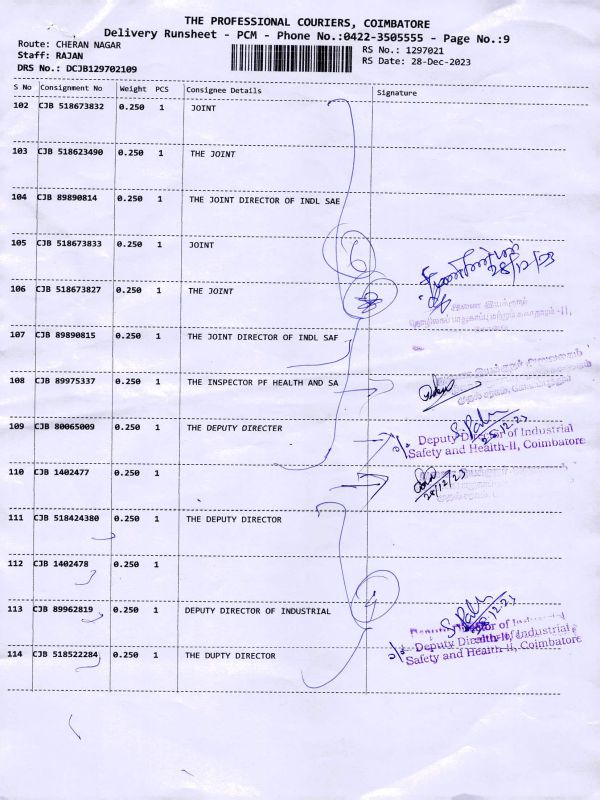 THE PROFESSIONAL COURIERS, COIMBATORE
Delivery Runsheet - PCM - Phone No.:0422-3505555 - Page No.:9
Route: CHERAN NAGAR
RS No.: 1297021
Staff: RAJAN
RS Date: 28-Dec-2023
DRS No.: DCJB129702109
S No Consignment No Weight PCS Consignee Details Signature
102 CJB 518673832 0.250 1 JOINT
103 CJB 518623490 0.250 1 THE JOINT
104 CJB 89890814 0.250 1 THE JOINT DIRECTOR OF INDL SAE
105 CJB 518673833 0.250 1 JOINT
6
106 CJB 518673827 0.250 1 THE JOINT
107 CJB 89890815 0.250 1 THE JOINT DIRECTOR OF INDL SAF
108 CJB 89975337 0.250 1 THE INSPECTOR PF HEALTH AND SA
109 CJB 80065009 0.250 1 THE DEPUTY DIRECTER
Deputy Director of Industrial
Safety and Health-II, Coimbatore
110 CJB 1402477 0.250 1
111 CJB 518424380 0.250 1 THE DEPUTY DIRECTOR
112 CJB 1402478 0.250 1
4
113 CJB 89962819 0.250 1 DEPUTY DIRECTOR OF INDUSTRIAL
Deputy Director of Industrial
Safety and Health-II, Coimbatore
114 CJB 518522284 0.250 1 THE DUPTY DIRECTOR